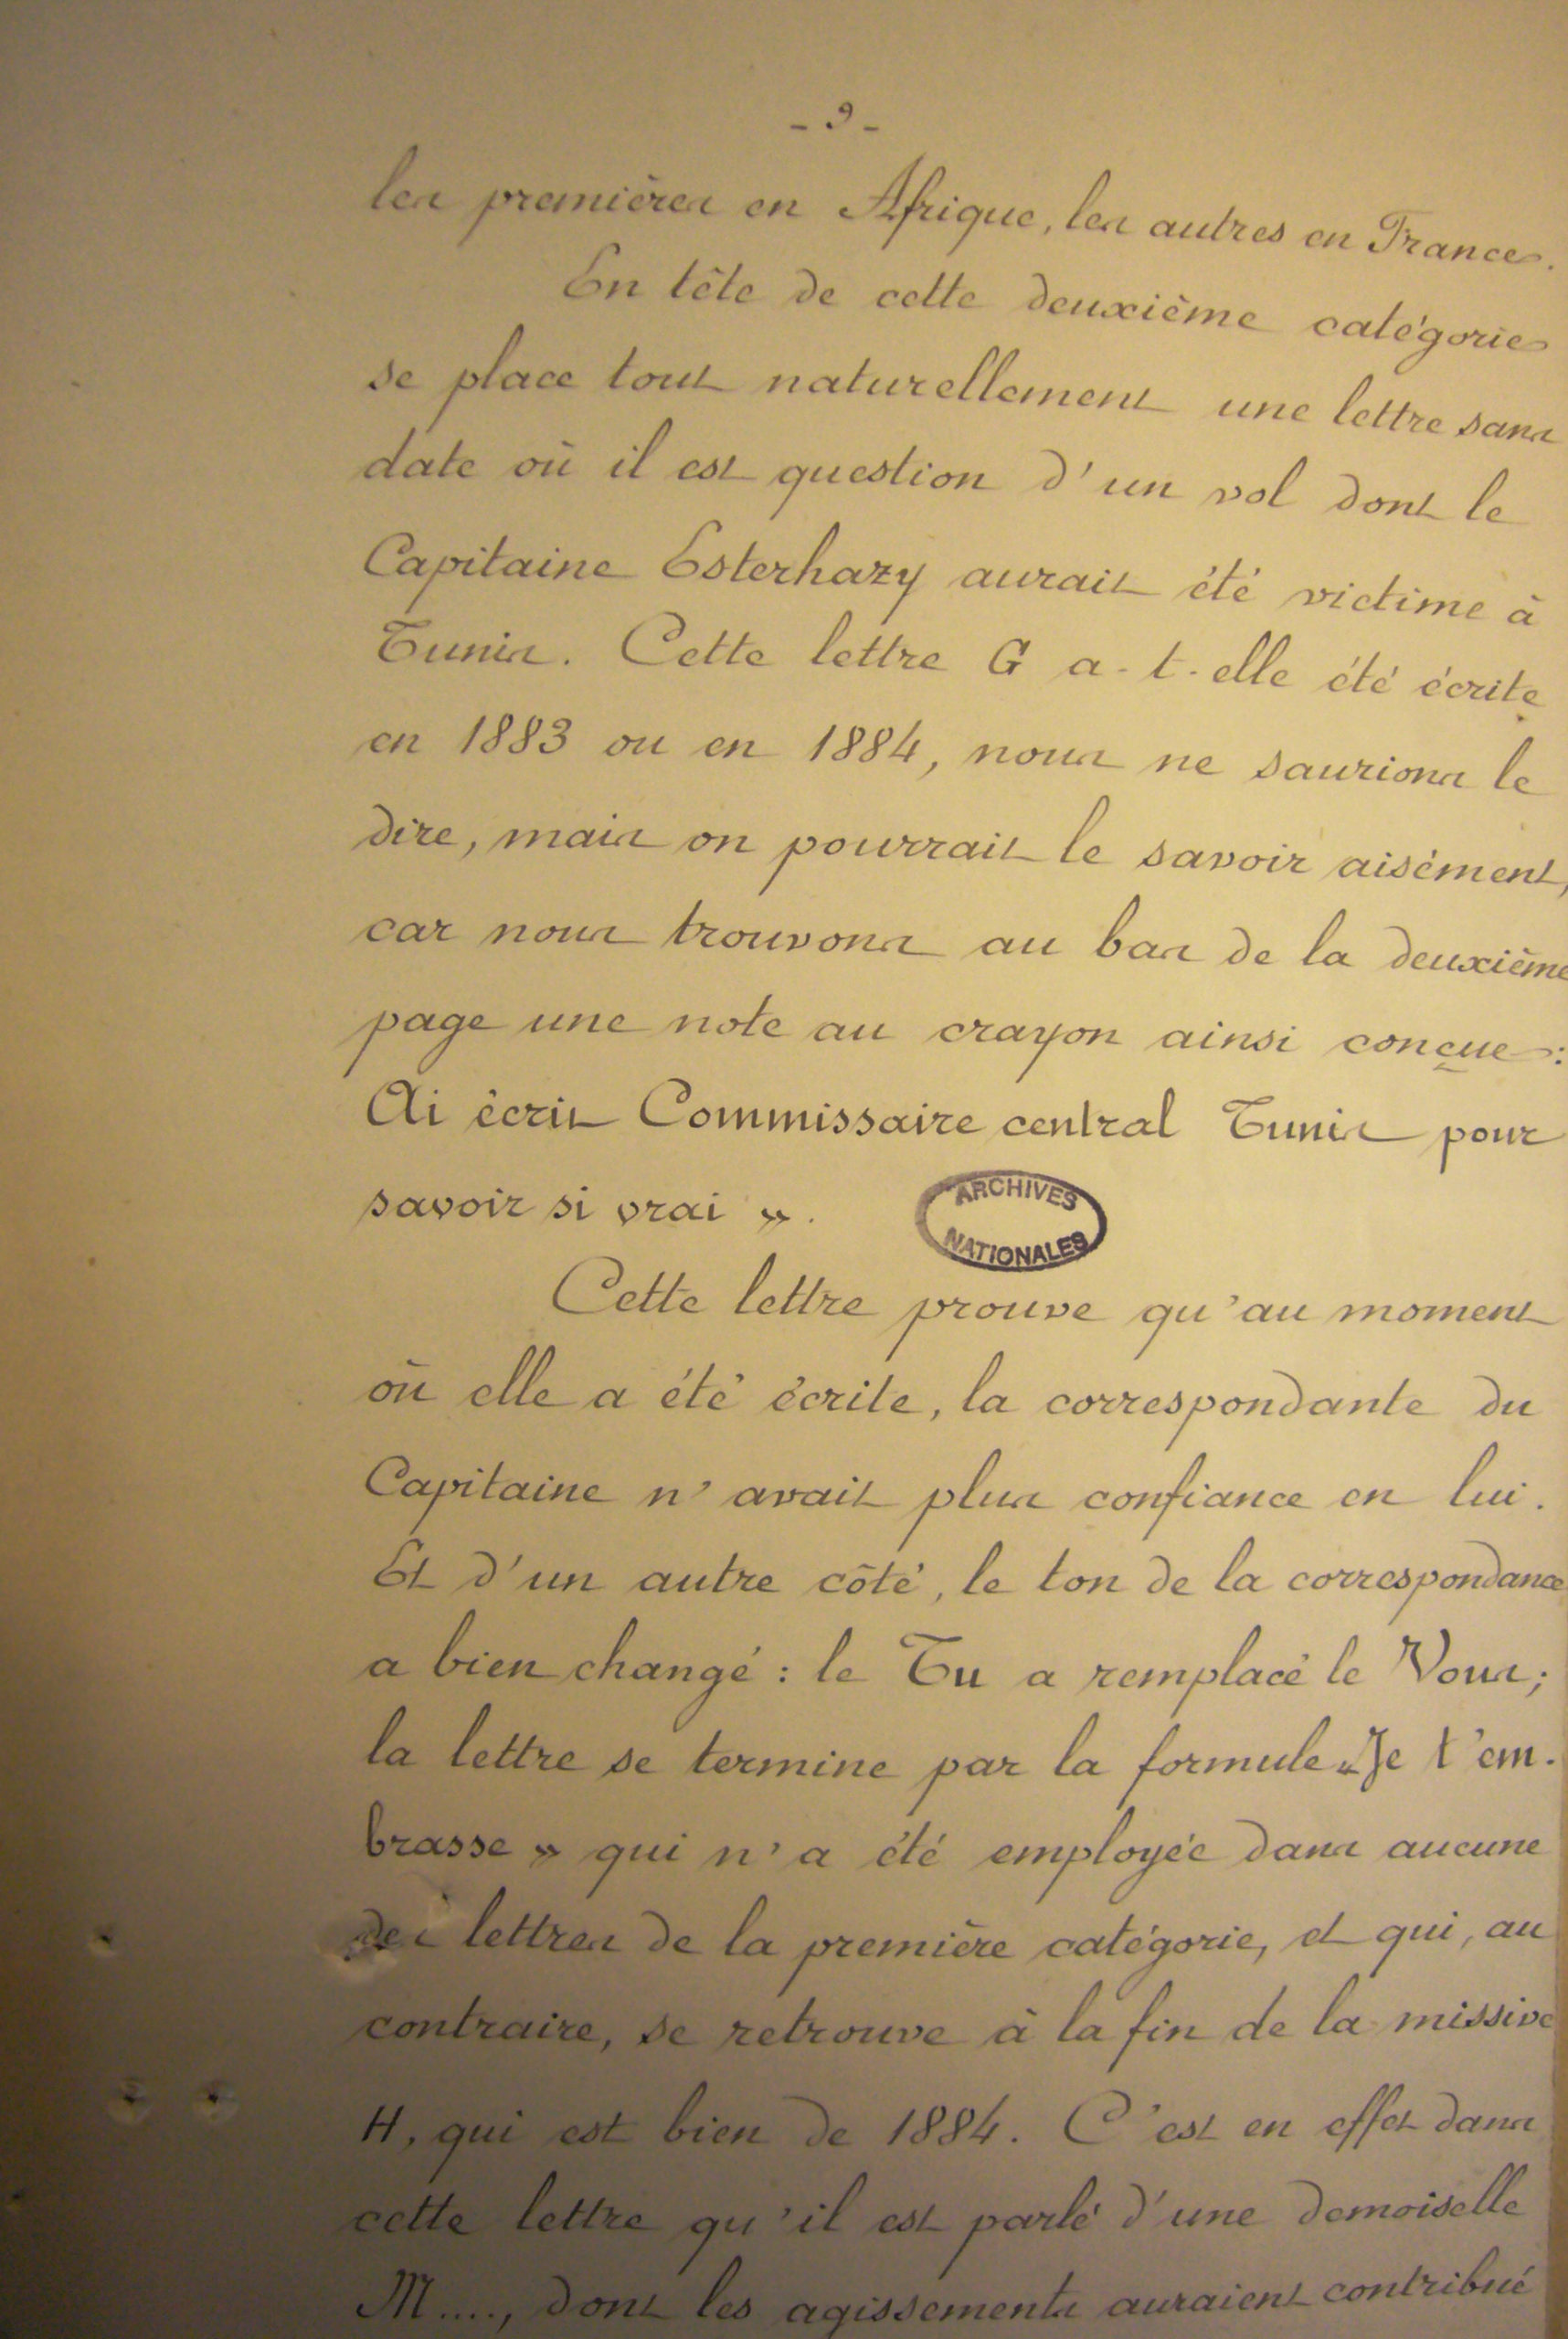 - 9 -
les premières en Afrique, les autres en France.
En tête de cette deuxième catégorie
se place tout naturellement une lettre sans
date où il est question d'un vol dont le
Capitaine Esterhazy aurait été victime à
Tunis. Cette lettre G a-t-elle été écrite
en 1883 ou en 1884, nous ne saurions le
dire, mais on pourrait le savoir aisément,
car nous trouvons au bas de la deuxième
page une note au crayon ainsi conçue :
Ai écrit Commissaire central Tunis pour
savoir si vrai ».
ARCHIVES
NATIONALES
Cette lettre prouve qu'au moment
où elle a été écrite, la correspondante du
Capitaine n'avait plus confiance en lui.
Et d'un autre côté, le ton de la correspondance
a bien changé : le Tu a remplacé le Vous ;
la lettre se termine par la formule « Je t'em-
brasse » qui n'a été employée dans aucune
des lettres de la première catégorie, et qui, au
contraire, se retrouve à la fin de la missive
H, qui est bien de 1884. C'est en effet dans
cette lettre qu'il est parlé d'une demoiselle
M...., dont les agissements auraient contribué